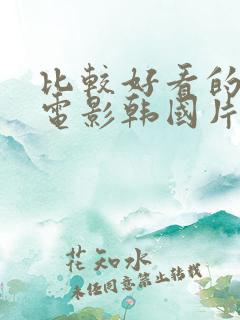 比較好看的
電影韩國片
花知水
未经同意禁止转载